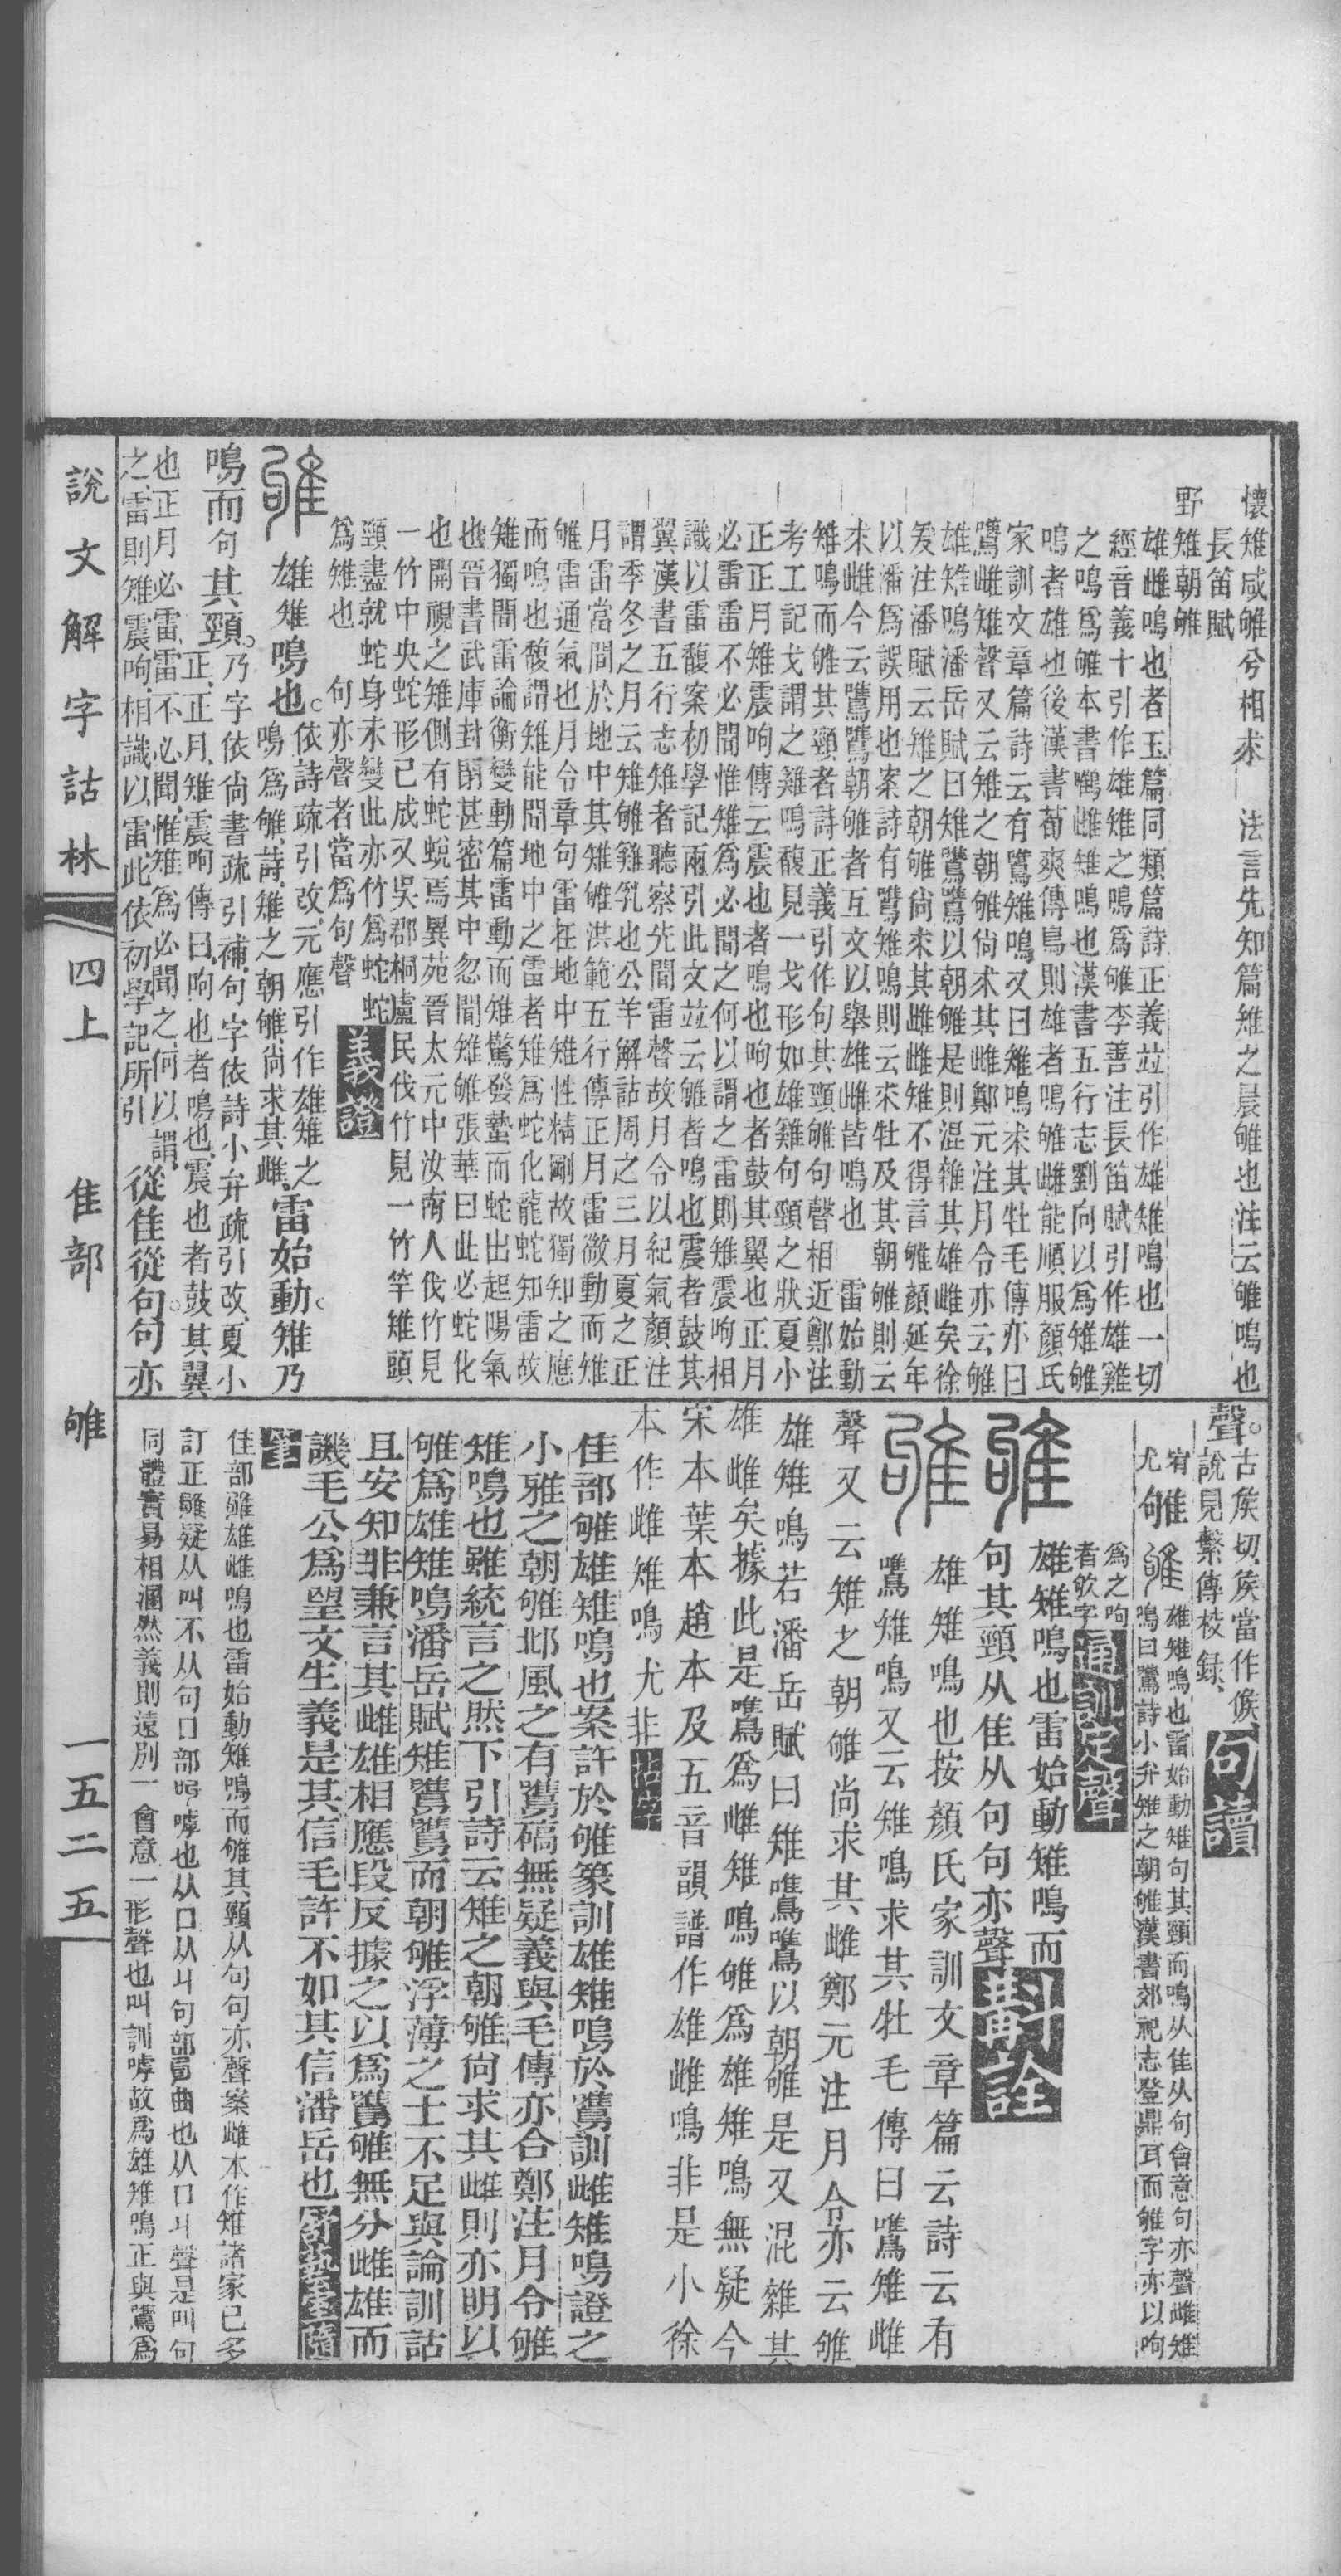 懷雉咸雊兮相求 法言先知篇雉之晨雊也注云雊鳴也
長笛賦
野雉朝雊
雄雌鳴也者玉篇同類篇詩正義竝引作雄雉鳴也一切
經音義十引作雄雉之鳴爲雊李善注長笛賦引作雄雞
之鳴爲雊本書鴝雌雉鳴也漢書五行志劉向以爲雉雊
鳴者雄也後漢書荀爽傳鳥則雄者鳴雊雌能順服顏氏
家訓文章篇詩云有鷕雉鳴又曰雉鳴求其牡毛傳亦曰
鷕雌雉聲又云雉之朝雊尚求其雌鄭元注月令亦云雊
雄雉鳴潘岳賦曰雉鷕鷕以朝雊是則混雜其雄雌矣徐
爰注潘賦云雉之朝雊尚求其雌雌雉不得言雊顏延年
以潘爲誤用也案詩有鷕雉鳴則云求牡及其朝雊則云
求雌今云鷕鷕朝雊者互文以舉雄雌皆鳴也 雷始動
雉鳴而雊其頸者詩正義引作句其頸雊句聲相近鄭注
考工記戈謂之雞鳴馥見一戈形如雄雞句頸之狀夏小
正正月雉震呴傳云震也者鳴也呴也者鼓其翼也正月
必雷雷不必聞惟雉爲必聞之何以謂之雷則雉震呴相
識以雷馥案初學記兩引此文竝云雊者鳴也震者鼓其
翼漢書五行志雉者聽察先聞雷聲故月令以紀氣顏注
謂季冬之月云雉雊雞乳也公羊解詁周之三月夏之正
月雷當聞於地中其雉雊洪範五行傳正月雷微動而雉
雊雷通氣也月令章句雷在地中雉性精剛故獨知之應
而鳴也馥謂雉能聞地中之雷者雉爲蛇化龍蛇知雷故
雉獨聞雷論衡變動篇雷動而雉驚發蟄而蛇出起陽氣
也晉書武庫封閉甚密其中忽聞雉雊張華曰此必蛇化
也開視之雉側有蛇蛻焉異苑晉太元中汝南人伐竹見
一竹中央蛇形已成又吳郡桐廬民伐竹見一竹竿雉頭
頸盡就蛇身未變此亦竹爲蛇蛇
爲雉也 句亦聲者當爲句聲 義證
雄雉鳴也。依詩疏引改、元應引作雄雉之
鳴爲雊、詩、雉之朝雊、尚求其雌、雷始動。雉乃
鳴而句其頸。乃字依尚書疏引補、句字依詩小弁疏引改、夏小
正、正月、雉震呴傳曰、呴也者鳴也、震也者鼓其翼
也正月必雷、雷不必聞、惟雉爲必聞之、何以謂
之、雷則雉震呴、相識以雷此依初學記所引 從隹從句。句亦
聲。古矦切、矦當作候、
說見繫傳校錄、 句讀
雄雉鳴也雷始動雉句其頸而鳴从隹从句會意句亦聲雌雉
鳴曰鷕詩小弁雉之朝雊漢書郊祀志登鼎耳而雊字亦以呴
爲之呴
者欨字 通訓定聲
雄雉鳴也雷始動雉鳴而
句其頸从隹从句句亦聲 斠詮
雄雉鳴也按顏氏家訓文章篇云詩云有
鷕雉鳴又云雉鳴求其牡毛傳曰鷕雉雌
聲又云雉之朝雊尚求其雌鄭元注月令亦云雊
雄雉鳴若潘岳賦曰雉鷕鷕以朝雊是又混雜其
雄雌矣據此是鷕爲雌雉鳴雊爲雄雉鳴無疑今
宋本葉本趙本及五音韻譜作雄雌鳴非是小徐
本作雌雉鳴尤非
隹部雊雄雉鳴也案許於雊篆訓雄雉鳴於鷕訓雌雉鳴證之
小雅之朝雊邶風之有鷕稿無疑義與毛傳亦合鄭注月令雊
雉鳴也雖統言之然下引詩云雉之朝雊尙求其雌則亦明以
雊爲雄雉鳴潘岳賦雉鷕鷕而朝雊浮薄之士不足與論訓詁
且安知非兼言其雌雄相應段反據之以爲鷕雊無分雌雄而
譏毛公爲望文生義是其信毛許不如其信潘岳也
隹部雊雄雌鳴也雷始動雉鳴而雊其頸从句句亦聲案雌本作雉諸家已多
訂正雊疑从叫不从句口部叫嘑也从口从丩句部句曲也从口丩聲是叫句
同體實易相溷然義則遠別一會意一形聲也叫訓嘑故爲雄雉鳴正與鷕爲
說文解字詁林 四上 隹部 雊 一五二五